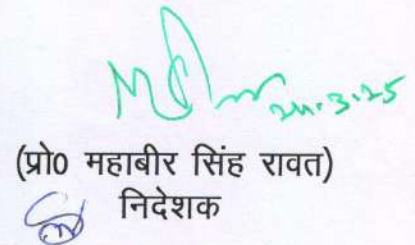 24.3.25
(प्रो0 महाबीर सिंह रावत)
निदेशक